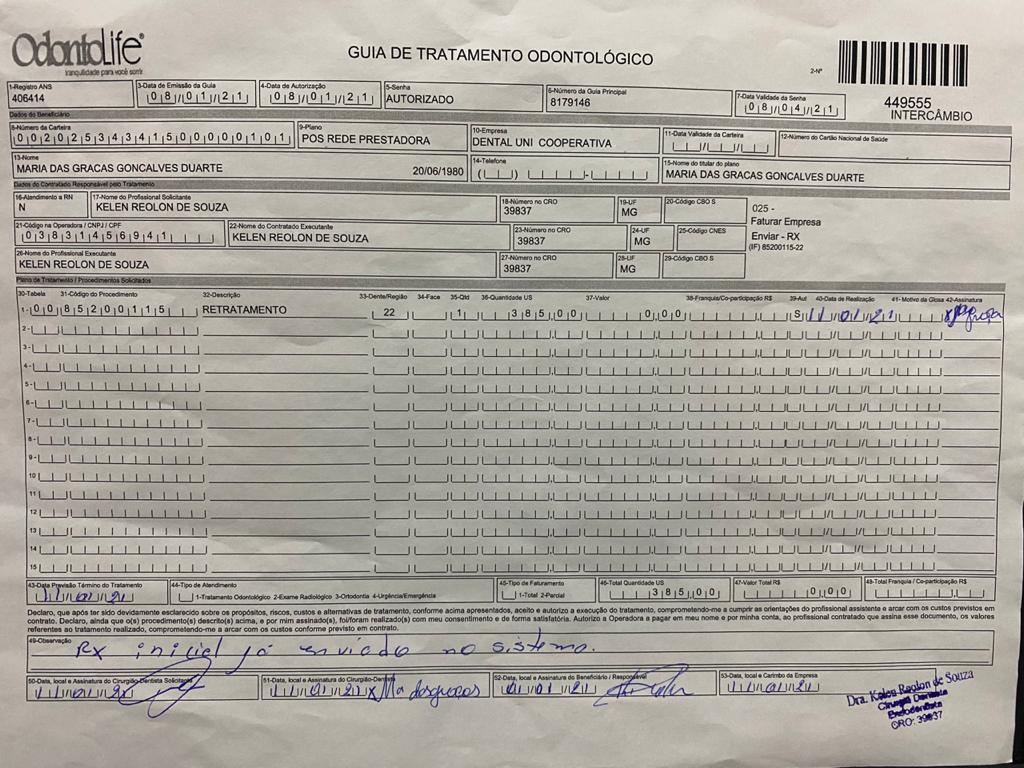 OdontoLife
tranquilidade para você sorrir
GUIA DE TRATAMENTO ODONTOLÓGICO
2-Nº
449555
INTERCÂMBIO
1-Registro ANS
406414
3-Data de Emissão da Guia
08/01/21
4-Data de Autorização
08/01/21
5-Senha
AUTORIZADO
6-Número da Guia Principal
8179146
7-Data Validade da Senha
08/04/21
Dados do Beneficiário
8-Número da Carteira
00202534341500000101
9-Plano
POS REDE PRESTADORA
10-Empresa
DENTAL UNI COOPERATIVA
11-Data Validade da Carteira
12-Número do Cartão Nacional de Saúde
13-Nome
MARIA DAS GRACAS GONCALVES DUARTE 20/06/1980
14-Telefone
15-Nome do titular do plano
MARIA DAS GRACAS GONCALVES DUARTE
Dados do Contratado Responsável pelo Tratamento
16-Atendimento a RN
N
17-Nome do Profissional Solicitante
KELEN REOLON DE SOUZA
18-Número no CRO
39837
19-UF
MG
20-Código CBO S
025 -
Faturar Empresa
Enviar - RX
(IF) 85200115-22
21-Código na Operadora / CNPJ / CPF
03831456941
22-Nome do Contratado Executante
KELEN REOLON DE SOUZA
23-Número no CRO
39837
24-UF
MG
25-Código CNES
26-Nome do Profissional Executante
KELEN REOLON DE SOUZA
27-Número no CRO
39837
28-UF
MG
29-Código CBO S
Plano de Tratamento / Procedimentos Solicitados
30-Tabela 31-Código do Procedimento 32-Descrição 33-Dente/Região 34-Face 35-Qtd 36-Quantidade US 37-Valor 38-Franquia/Co-participação R$ 39-Aut 40-Data de Realização 41- Motivo da Glosa 42-Assinatura
1- 00 85200115 RETRATAMENTO 22 1 385,00 0,00 S 11/01/21
2-
3-
4-
5-
6-
7-
8-
9-
10
11
12
13
14
15
43-Data Previsão Término do Tratamento
11/01/21
44-Tipo de Atendimento
1-Tratamento Odontológico 2-Exame Radiológico 3-Ortodontia 4-Urgência/Emergência
45-Tipo de Faturamento
1-Total 2-Parcial
46-Total Quantidade US
385,00
47-Valor Total R$
0,00
48-Total Franquia / Co-participação R$
Declaro, que após ter sido devidamente esclarecido sobre os propósitos, riscos, custos e alternativas de tratamento, conforme acima apresentados, aceito e autorizo a execução do tratamento, comprometendo-me a cumprir as orientações do profissional assistente e arcar com os custos previstos em
contrato. Declaro, ainda que o(s) procedimento(s) descrito(s) acima, e por mim assinado(s), foi/foram realizado(s) com meu consentimento e de forma satisfatória. Autorizo a Operadora a pagar em meu nome e por minha conta, ao profissional contratado que assina esse documento, os valores
referentes ao tratamento realizado, comprometendo-me a arcar com os custos conforme previsto em contrato.
49-Observação
RX inicial já enviado no sistema.
50-Data, local e Assinatura do Cirurgião-Dentista Solicitante
11/01/21
51-Data, local e Assinatura do Cirurgião-Dentista
11/01/21 x Ma das graças
52-Data, local e Assinatura do Beneficiário / Responsável
53-Data, local e Carimbo da Empresa
11/01/21
Dra. Kelen Reolon de Souza
Cirurgiã Dentista
Endodontista
CRO: 39837